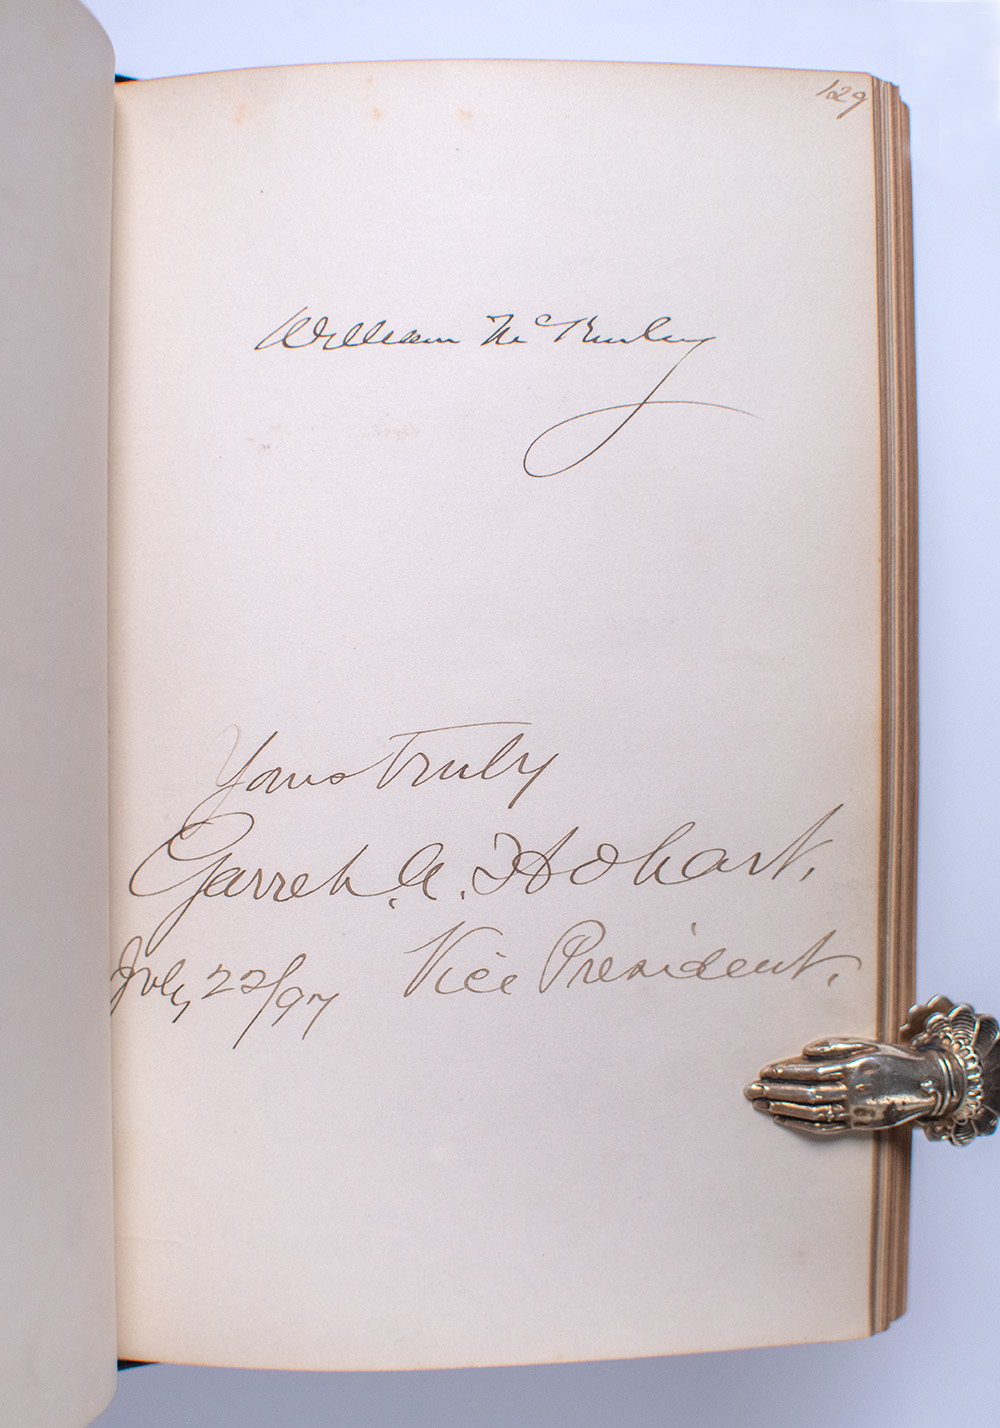 129
William McKinley
Yours Truly
Garret A. Hobart.
July 22/97 Vice President.